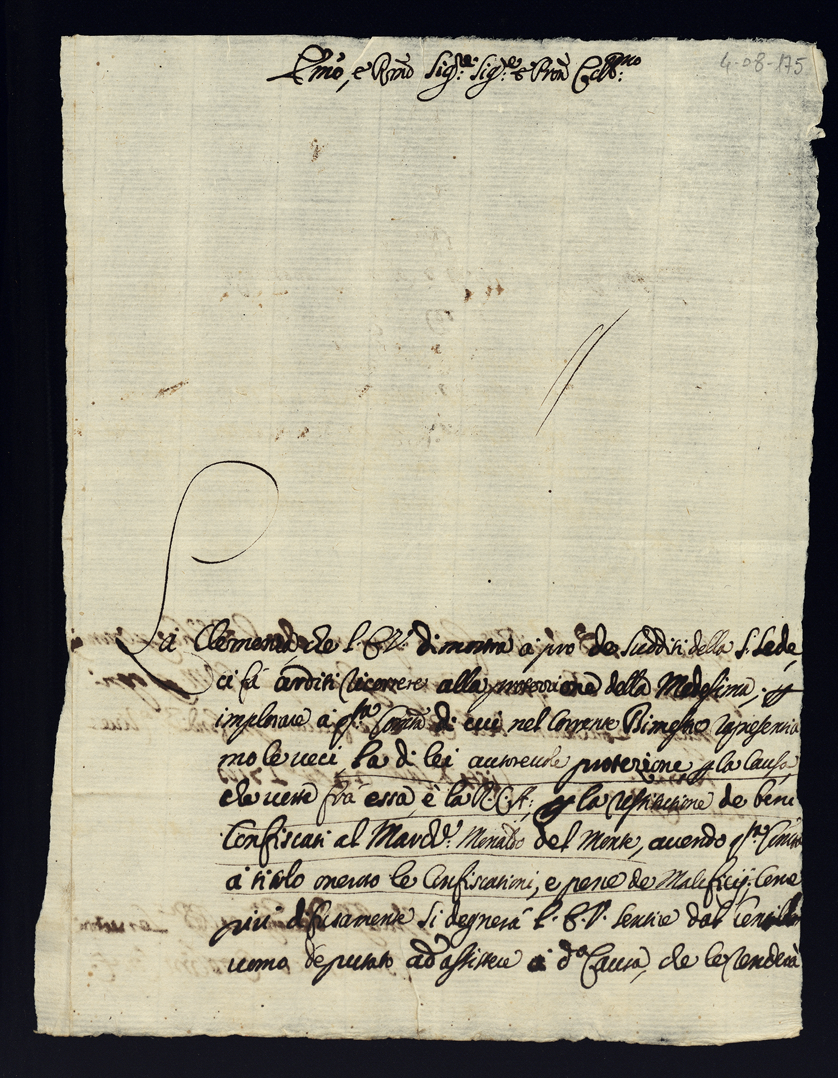 Emo, e Rmo Sig.re Sig.re e Pron Colmo
4-08-175
La Clemenza, che l'E.V. dimostra a prò de Sudditi della S. Sede,
ci fà arditi ricorrere alla protezione della Medesima, p
implorare a qsta Comtà di cui nel Corrente Bimestre rapresentia
mo le veci la di lei autorevole protezione p la Causa,
che verte frà essa, e la R.C.A., p la restituzione de beni
Confiscati al March. del Monte, avendo qsta Comtà
a titolo oneroso le Confiscationi, e pene de Maleficij. Come
più difusamente si degnerà l'E.V. sentire dal Gentil
uomo deputato ad assistere a da Causa, che le renderà